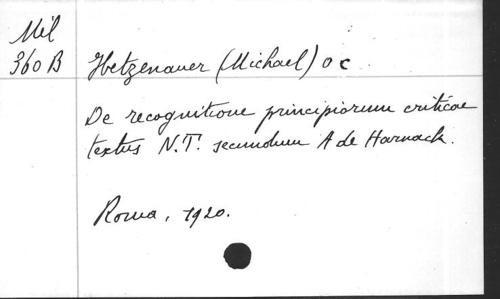 Mil
360 B
Hetzenauer (Michael) o c
De recognitione principiorum criticae
textus N.T. secundum A de Harnack.
Roma, 1920.